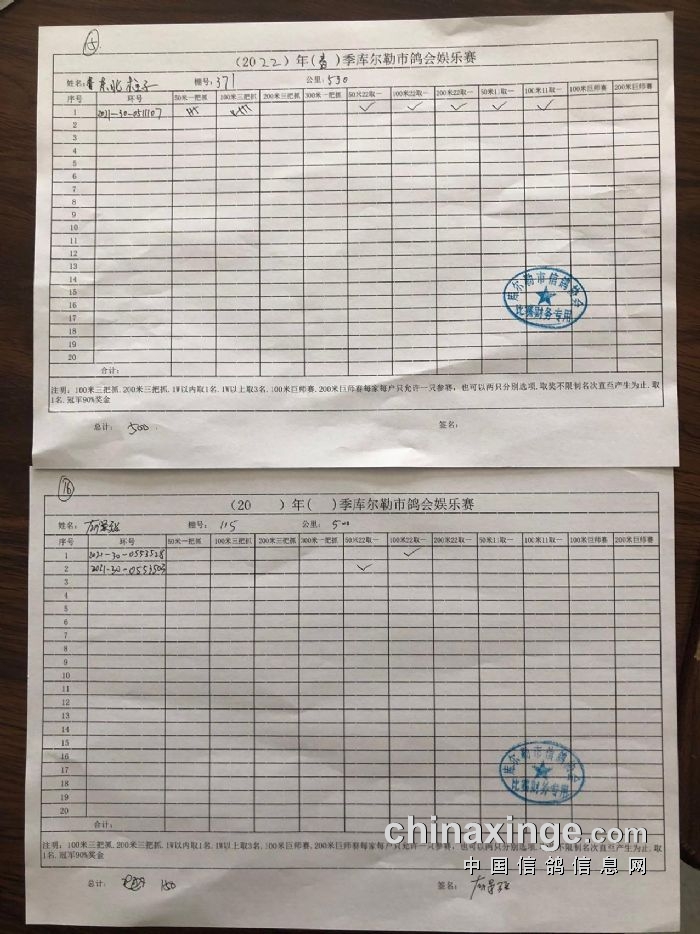 15
(2022)年(春)季库尔勒市鸽会娱乐赛
姓名: 棚号: 371 公里: 530
序号 环号 50米一把抓 100米三把抓 200米三把抓 300米一把抓 50米22取一 100米22取一 200米22取一 50米11取一 100米11取一 100米巨师赛 200米巨师赛
1 2021-30-0511107 ✓ ✓ ✓ ✓ ✓
2
3
4
5
6
7
8
9
10
11
12
13
14
15
16
17
18
19
20
合计:
库尔勒市信鸽协会
比赛财务专用
注明: 100米三把抓.200米三把抓.1W以内取1名.1W以上取3名.100米巨师赛.200米巨师赛每家每户只允许一只参赛, 也可以两只分别选项.取奖不限制名次直至产生为止.取
1名.冠军90%奖金
总计: 500 签名:
16
(20 )年( )季库尔勒市鸽会娱乐赛
姓名: 棚号: 115 公里: 500
序号 环号 50米一把抓 100米三把抓 200米三把抓 300米一把抓 50米22取一 100米22取一 200米22取一 50米11取一 100米11取一 100米巨师赛 200米巨师赛
1 2021-30-0553528 ✓
2 2021-30-0553503 ✓
3
4
5
6
7
8
9
10
11
12
13
14
15
16
17
18
19
20
合计:
库尔勒市信鸽协会
比赛财务专用
注明: 100米三把抓.200米三把抓.1W以内取1名.1W以上取3名.100米巨师赛.200米巨师赛每家每户只允许一只参赛, 也可以两只分别选项.取奖不限制名次直至产生为止.取
1名.冠军90%奖金
总计: 150 签名:
chinaxinge.com
中国信鸽信息网